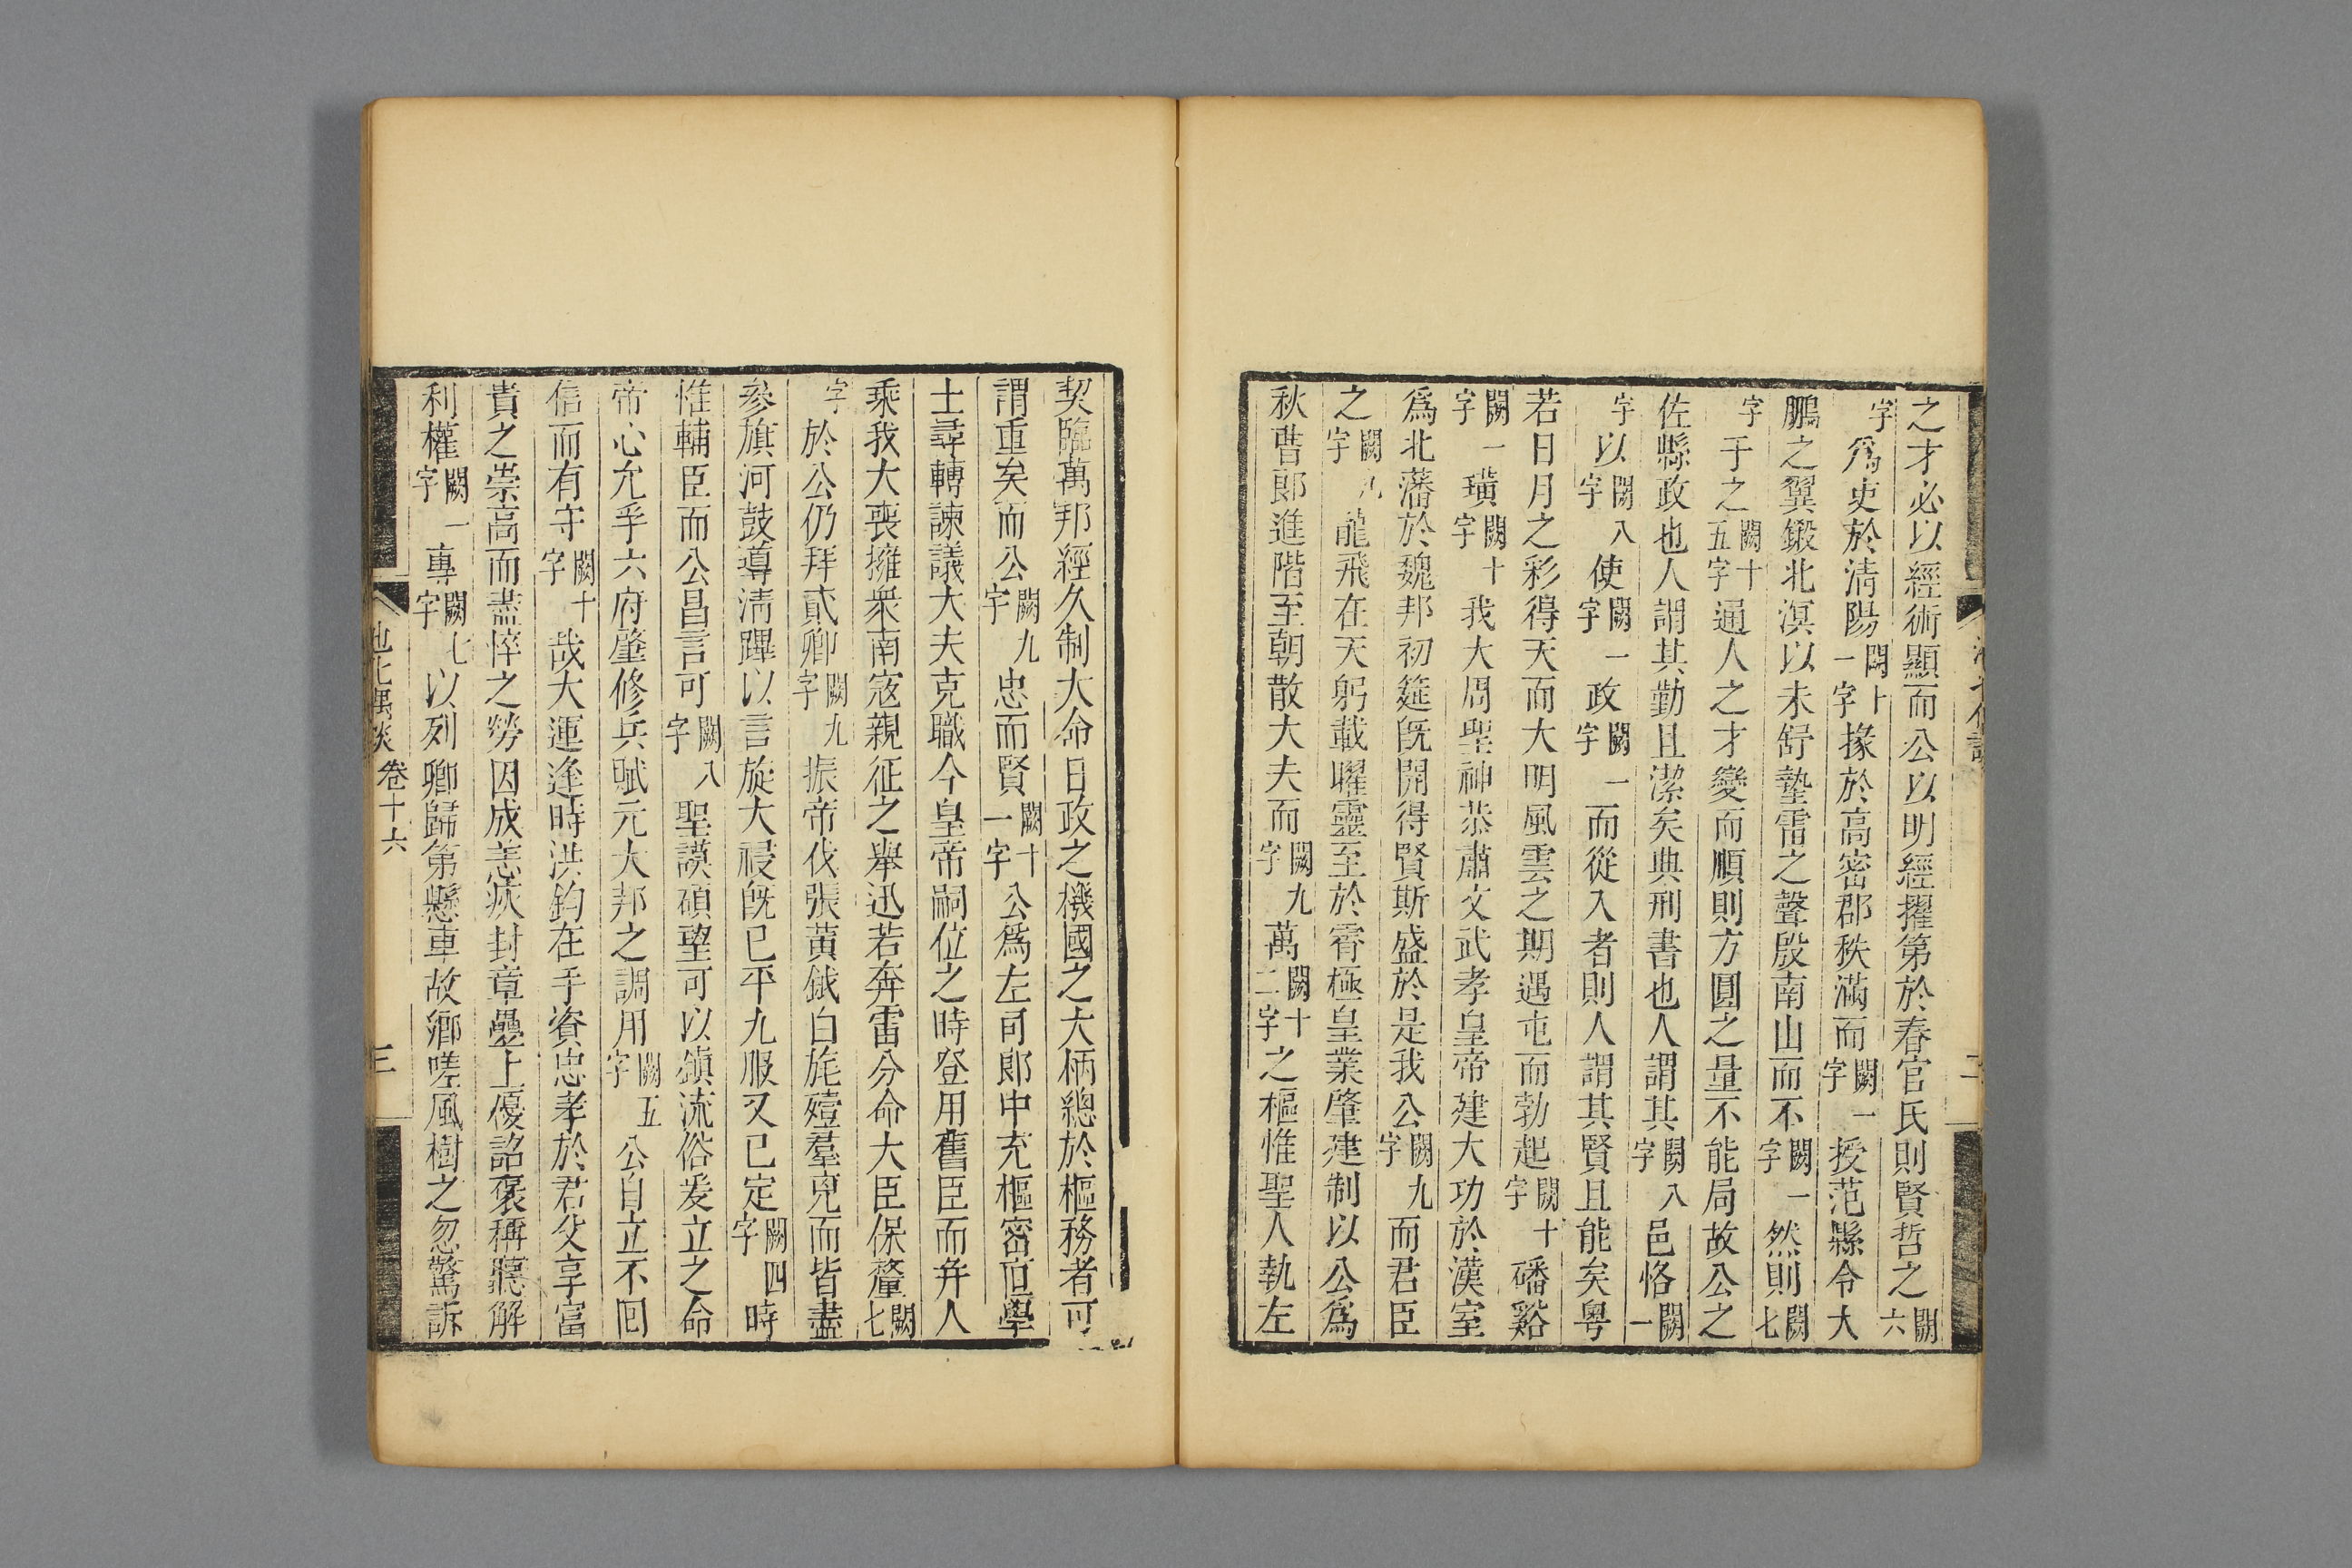 之才必以經術顯而公以明經擢第於春官氏則賢哲之闕六
字爲吏於清陽闕十一字掾於高密郡秩滿而闕一字授范縣令大
鵬之翼鍛北溟以未舒蟄雷之聲殷南山而不闕一字然則闕七
字于之闕十五字通人之才變而順則方圓之量不能局故公之
佐縣政也人謂其勤且潔矣典刑書也人謂其闕八字邑恪闕一
字以闕八字使闕一字政闕一字而從入者則人謂其賢且能矣粤
若日月之彩得天而大明風雲之期遇屯而勃起闕十字磻谿
闕一字璜闕十字我大周聖神恭肅文武孝皇帝建大功於漢室
爲北藩於魏邦初筵旣開得賢斯盛於是我公闕九字而君臣
之闕九字龍飛在天躬載曜靈至於霄極皇業肇建制以公爲
秋曹郎進階至朝散大夫而闕九字萬闕十二字之樞惟聖人執左
契臨萬邦經久制大命日政之機國之大柄總於樞務者可
謂重矣而公闕九字忠而賢闕十一字公爲左司郎中充樞密直學
士尋轉諫議大夫克職今皇帝嗣位之時登用舊臣而幷人
乘我大喪擁衆南寇親征之舉迅若奔雷分命大臣保釐闕七
字於公仍拜貳卿闕九字振帝伐張黃鉞白旄殪羣兇而皆盡
參旗河鼓導清蹕以言旋大祲旣已平九服又已定闕四字時
惟輔臣而公昌言可闕八字聖謨碩望可以鎮流俗爰立之命
帝心允孚六府肇修兵賦元大邦之調用闕五字公自立不回
信而有守闕十字哉大運逢時洪鈞在手資忠孝於君父享富
貴之崇高而盡悴之勞因成恙疾封章疊上優詔褒稱聽解
利權闕一字專闕七字以列卿歸第懸車故鄉嗟風樹之忽驚訴
池北偶談 卷十六 三